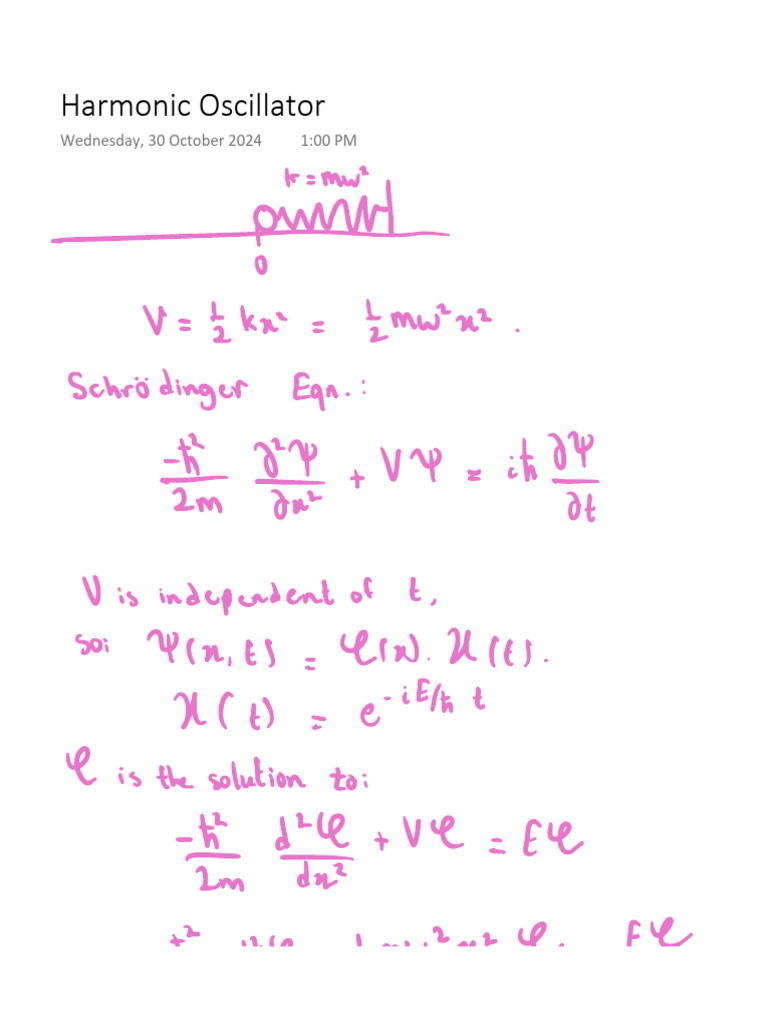 Harmonic Oscillator
Wednesday, 30 October 2024 1:00 PM
k = mω²
0
V = 1/2 kx² = 1/2 mω²x².
Schrödinger Eqn.:
-ħ²/2m ∂²Ψ/∂x² + VΨ = iħ ∂Ψ/∂t
V is independent of t,
so: Ψ(x,t) = φ(x). χ(t).
χ(t) = e^(-iE/ħ t)
φ is the solution to:
-ħ²/2m d²φ/dx² + Vφ = Eφ